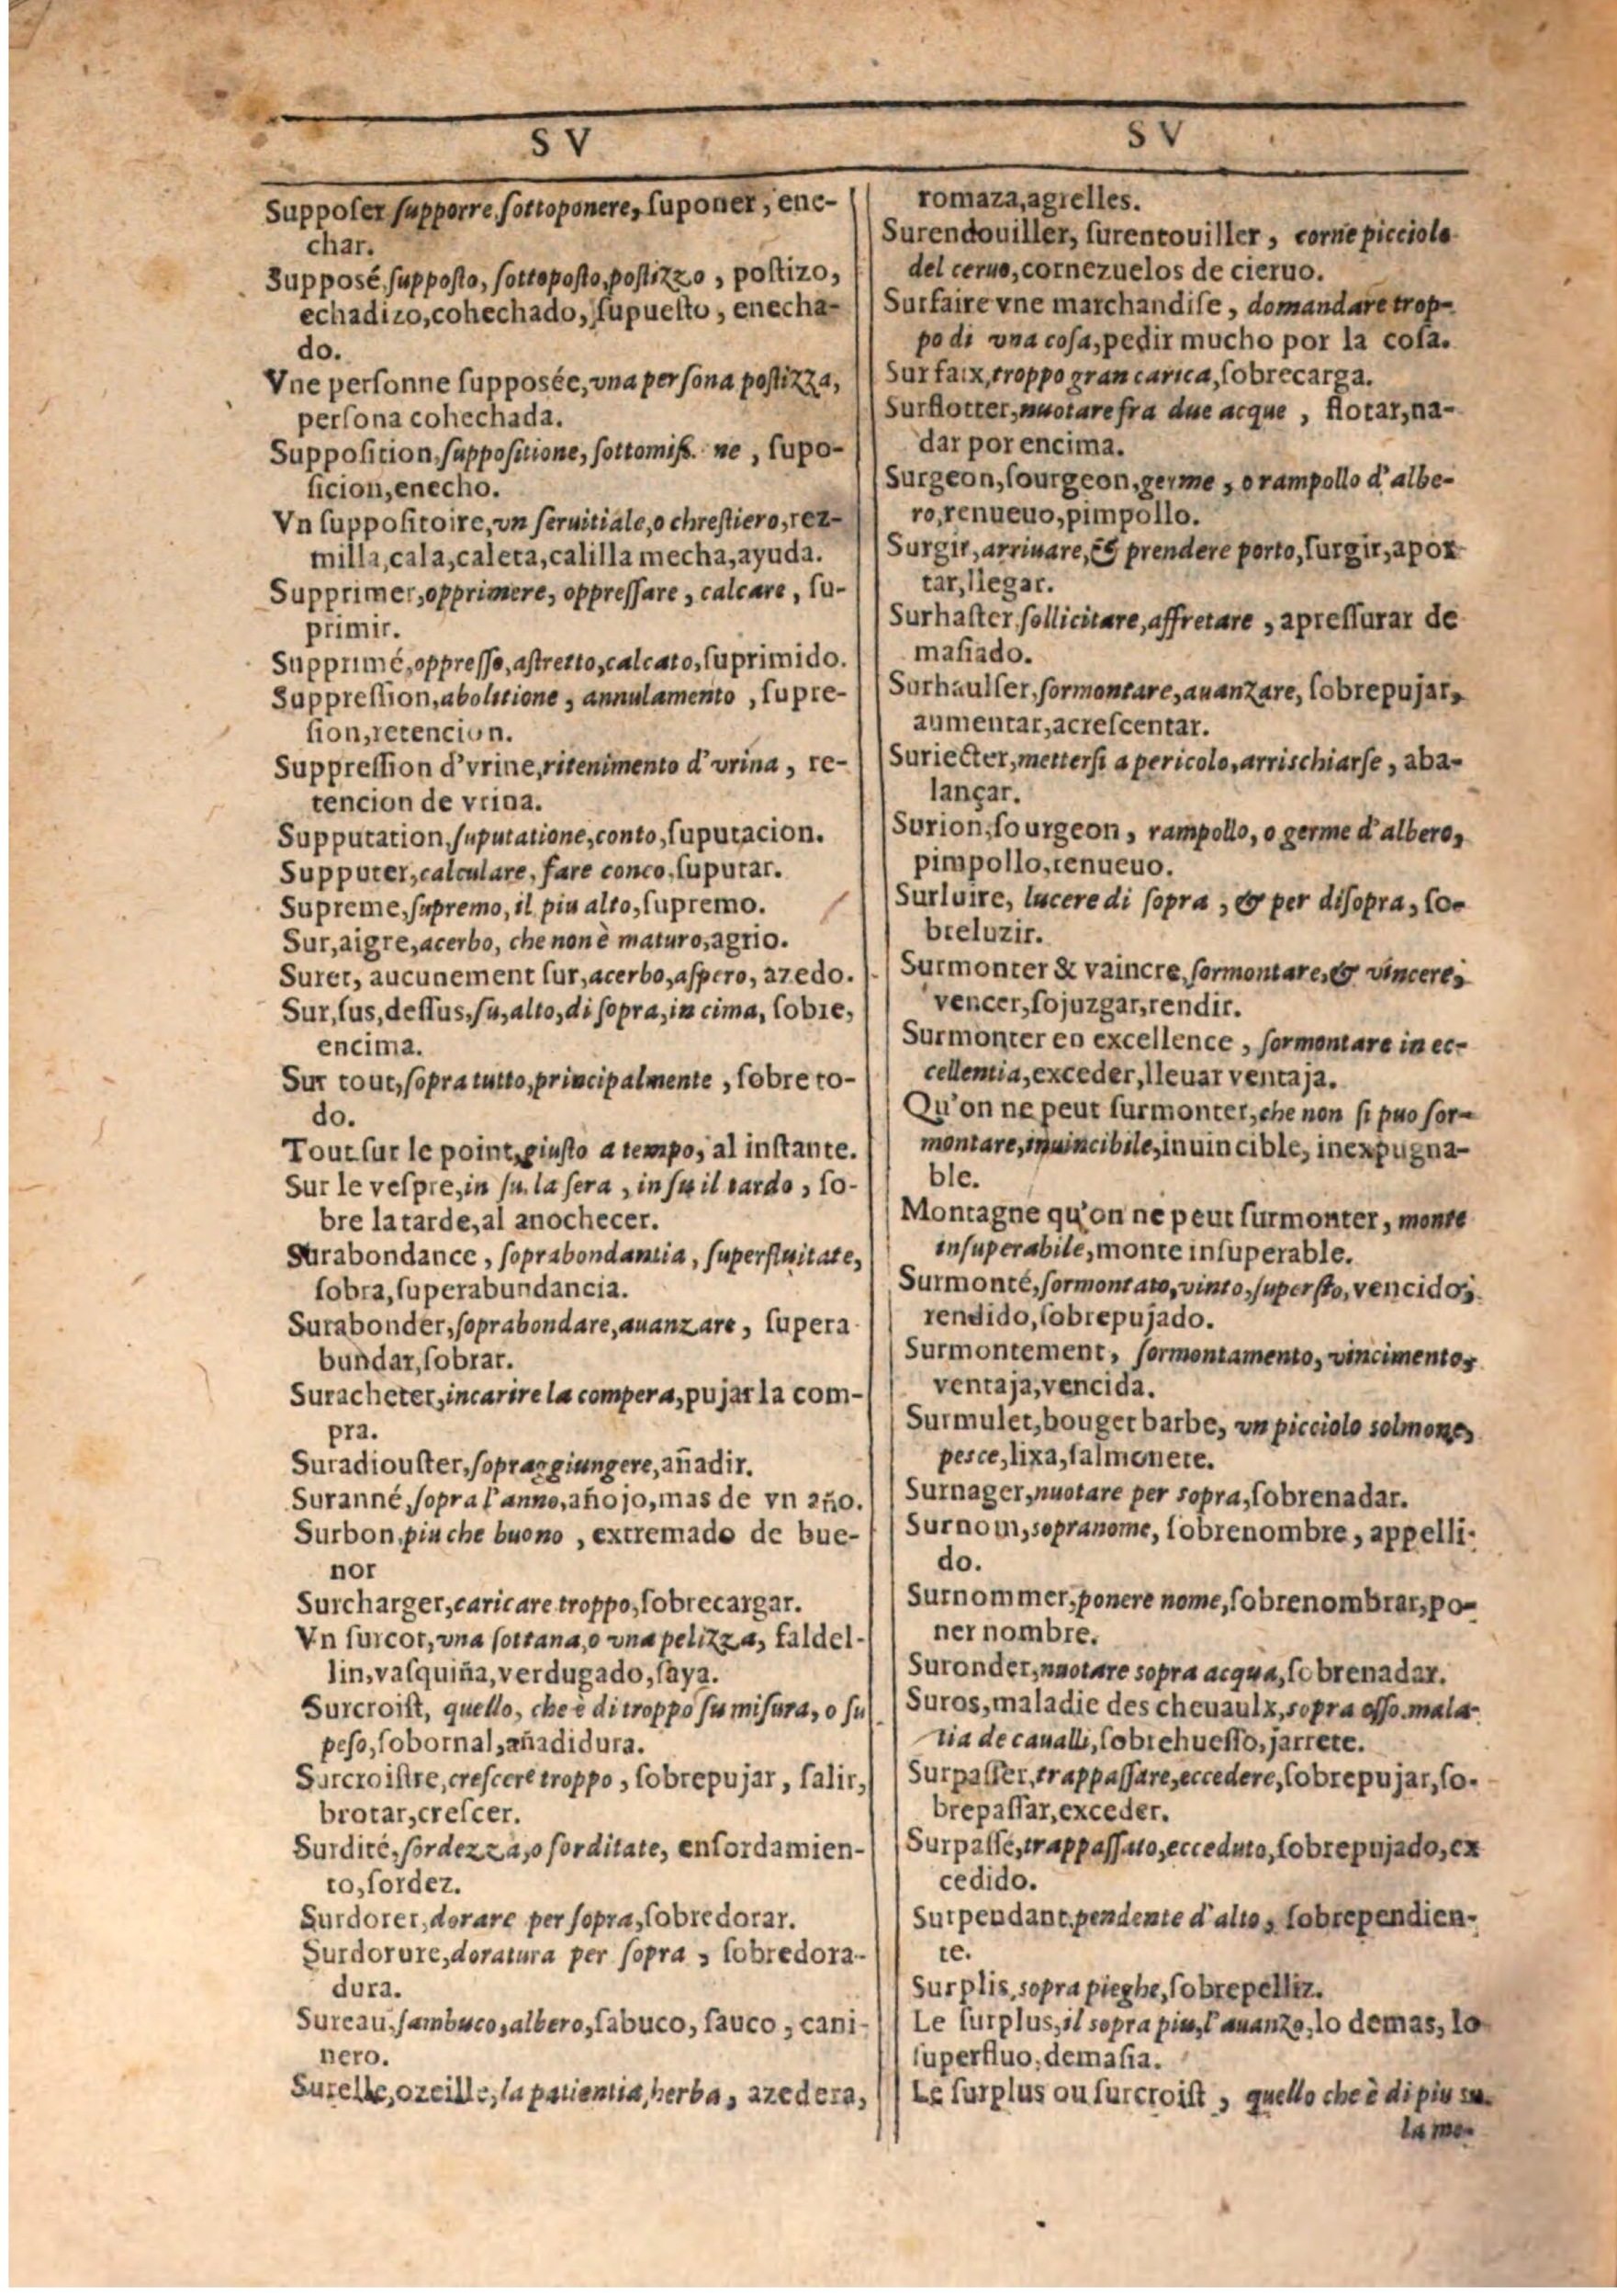 S V
Supposer, supporre, sottoponere, suponer, ene-
char.
Supposé, supposto, sottoposto, postizzo, postizo,
echadizo, cohechado, supuesto, enecha-
do.
Vne personne supposée, vna persona postizza,
persona cohechada.
Supposition, suppositione, sottomiss. ne, supo-
sicion, enecho.
Vn suppositoire, vn seruitiale, o chrestiero, rez-
milla, cala, caleta, calilla mecha, ayuda.
Supprimer, opprimere, oppressare, calcare, su-
primir.
Supprimé, oppresso, astretto, calcato, suprimido.
Suppression, abolitione, annulamento, supre-
sion, retencion.
Suppression d'vrine, ritenimento d'vrina, re-
tencion de vrina.
Supputation, suputatione, conto, suputacion.
Supputer, calculare, fare conco, suputar.
Supreme, supremo, il piu alto, supremo.
Sur, aigre, acerbo, che non è maturo, agrio.
Suret, aucunement sur, acerbo, aspero, azedo.
Sur, sus, dessus, su, alto, di sopra, in cima, sobre,
encima.
Sur tout, sopra tutto, principalmente, sobre to-
do.
Tout sur le point, giusto a tempo, al instante.
Sur le vespre, in su la sera, in su il tardo, so-
bre la tarde, al anochecer.
Surabondance, soprabondantia, superfluitate,
sobra, superabundancia.
Surabonder, soprabondare, auanzare, supera
bundar, sobrar.
Suracheter, incarire la compera, pujar la com-
pra.
Suradiouster, sopraggiungere, añadir.
Suranné, sopra l'anno, añojo, mas de vn año.
Surbon, piu che buono, extremado de bue-
nor
Surcharger, caricare troppo, sobrecargar.
Vn surcot, vna sottana, o vna pelizza, faldel-
lin, vasquiña, verdugado, saya.
Surcroist, quello, che è di troppo su misura, o su
peso, sobornal, añadidura.
Surcroistre, crescere troppo, sobrepujar, salir,
brotar, crescer.
Surdité, sordezza, o sorditate, ensordamien-
to, sordez.
Surdorer, dorare per sopra, sobredorar.
Surdorure, doratura per sopra, sobredora-
dura.
Sureau, sambuco, albero, sabuco, sauco, cani-
nero.
Surelle, ozeille, la patientia, herba, azedera,
S V
romaza, agrelles.
Surendouiller, surentouiller, corne picciole
del ceruo, cornezuelos de cieruo.
Surfaire vne marchandise, domandare trop-
po di vna cosa, pedir mucho por la cosa.
Surfaix, troppo gran carica, sobrecarga.
Surflotter, nuotare fra due acque, flotar, na-
dar por encima.
Surgeon, sourgeon, germe, o rampollo d'albe-
ro, renueuo, pimpollo.
Surgir, arriuare, & prendere porto, surgir, apor
tar, llegar.
Surhaster, sollicitare, affretare, apressurar de
masiado.
Surhaulser, sormontare, auanzare, sobrepujar,
aumentar, acrescentar.
Suriecter, mettersi a pericolo, arrischiarse, aba-
lançar.
Surion, sourgeon, rampollo, o germe d'albero,
pimpollo, renueuo.
Surluire, lucere di sopra, & per disopra, so-
breluzir.
Surmonter & vaincre, sormontare, & vincere,
vencer, sojuzgar, rendir.
Surmonter en excellence, sormontare in ec-
cellentia, exceder, lleuar ventaja.
Qu'on ne peut surmonter, che non si puo sor-
montare, inuincibile, inuincible, inexpugna-
ble.
Montagne qu'on ne peut surmonter, monte
insuperabile, monte insuperable.
Surmonté, sormontato, vinto, supersto, vencido,
rendido, sobrepujado.
Surmontement, sormontamento, vincimento,
ventaja, vencida.
Surmulet, bouget barbe, vn picciolo solmone,
pesce, lixa, salmonete.
Surnager, nuotare per sopra, sobrenadar.
Surnom, sopranome, sobrenombre, appelli-
do.
Surnommer, ponere nome, sobrenombrar, po-
ner nombre.
Suronder, nuotare sopra acqua, sobrenadar.
Suros, maladie des cheuaulx, sopra osso. mala-
tia de caualli, sobrehuesso, jarrete.
Surpasser, trappassare, eccedere, sobrepujar, so-
brepassar, exceder.
Surpassé, trappassato, ecceduto, sobrepujado, ex
cedido.
Surpendant, pendente d'alto, sobrependien-
te.
Surplis, sopra pieghe, sobrepelliz.
Le surplus, il sopra piu, l'auanzo, lo demas, lo
superfluo, demasia.
Le surplus ou surcroist, quello che è di piu su.
la me-